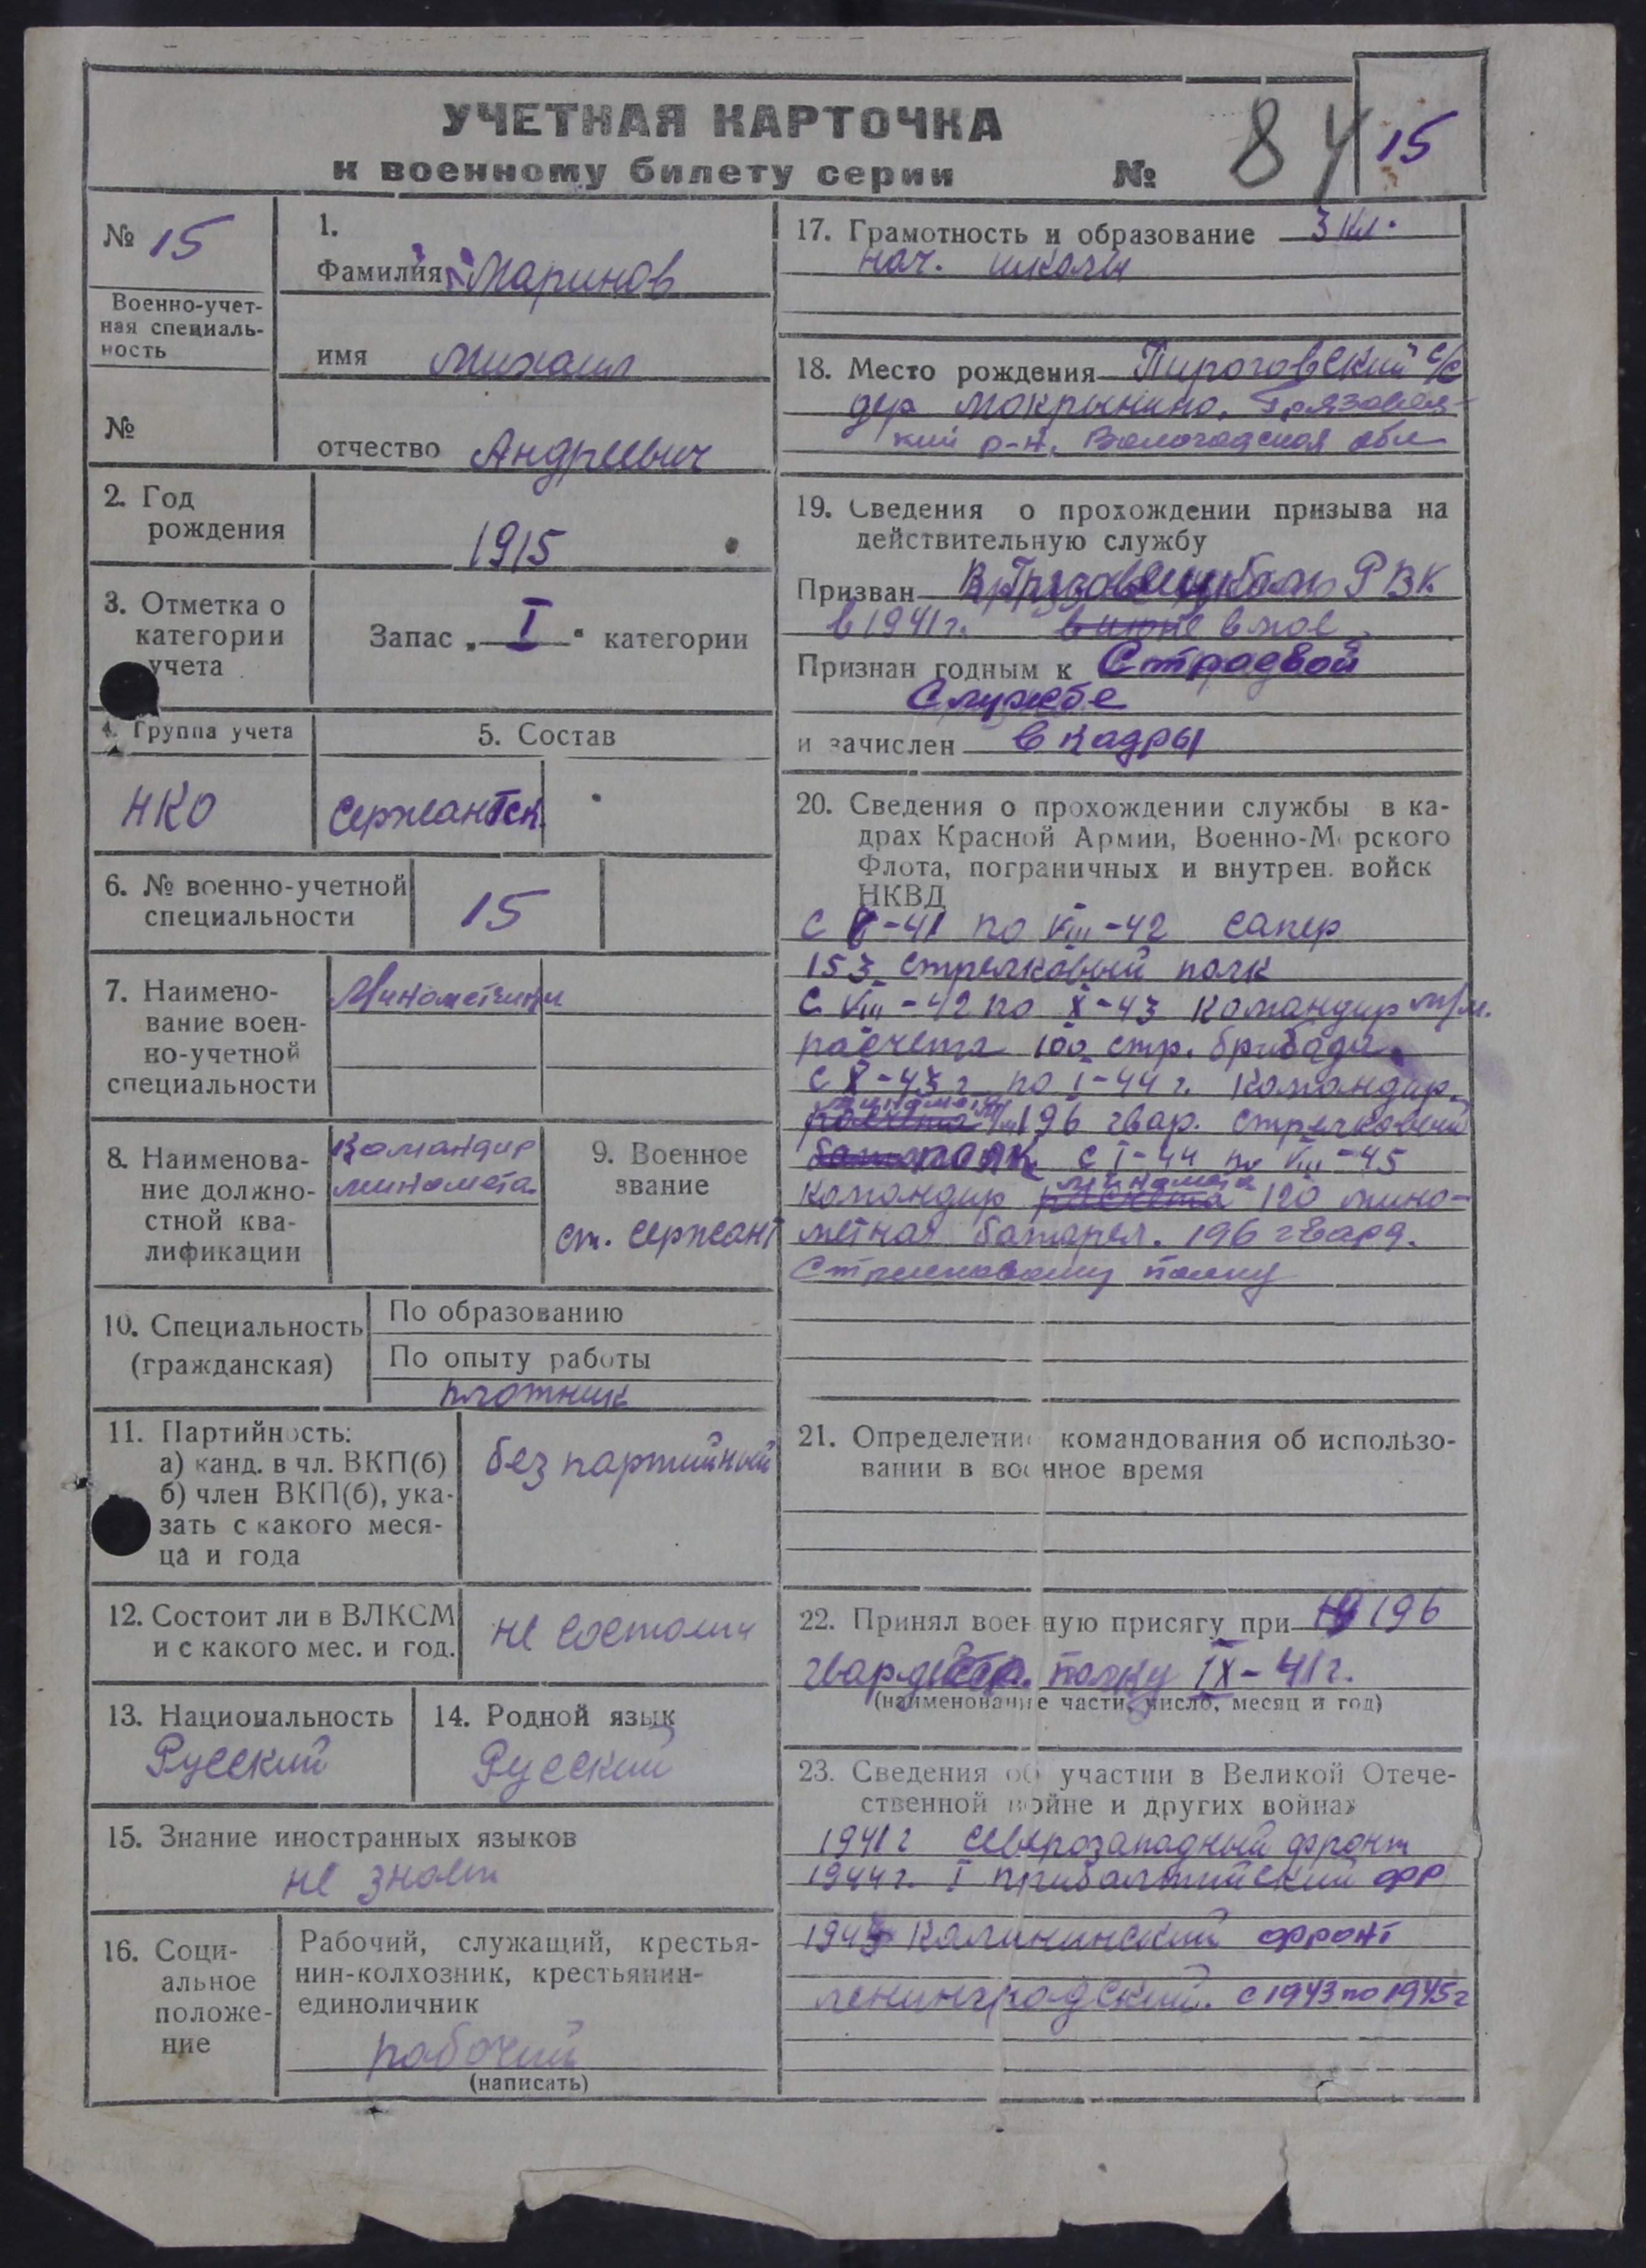 УЧЕТНАЯ КАРТОЧКА
к военному билету серии № 84 15
№ 15
Военно-учет-
ная специаль-
ность
№
1.
Фамилия Маринов
имя Михаил
отчество Андреевич
2. Год
рождения
1915
3. Отметка о
категории
учета
Запас „ I “ категории
4. Группа учета
НКО
5. Состав
Сержантск.
6. № военно-учетной
специальности
15
7. Наимено-
вание воен-
но-учетной
специальности
Минометчики
8. Наименова-
ние должно-
стной ква-
лификации
Командир
миномета
9. Военное
звание
ст. сержант
10. Специальность
(гражданская)
По образованию
По опыту работы
плотник
11. Партийность:
а) канд. в чл. ВКП(б)
б) член ВКП(б), ука-
зать с какого меся-
ца и года
без партийный
12. Состоит ли в ВЛКСМ
и с какого мес. и год.
не состоит
13. Национальность
Русский
14. Родной язык
Русский
15. Знание иностранных языков
не знает
16. Соци-
альное
положе-
ние
Рабочий, служащий, крестья-
нин-колхозник, крестьянин-
единоличник
рабочий
(написать)
17. Грамотность и образование 3 кл.
нач. школы
18. Место рождения Пироговский с/с
дер Мокрынино. Грязовец-
кий р-н. Вологодская обл
19. Сведения о прохождении призыва на
действительную службу
Призван РВК
в 1941 г. в июне в мае
Признан годным к Строевой
Службе
и зачислен в кадры
20. Сведения о прохождении службы в ка-
драх Красной Армии, Военно-Морского
Флота, пограничных и внутрен. войск
НКВД
с -41 по VIII-42 сапер
153 стрелковый полк
с VIII-42 по X-43 командир м/м.
расчета 100 стр. бригада
с X-43 г. по I-44 г. командир
миномета
расчета 196 гвар. стрелковый
полк с I-44 по VIII-45
миномета
командир расчета 120 мино-
метная батарея. 196 гвард.
Стрелковому полку
21. Определение командования об использо-
вании в военное время
22. Принял военную присягу при 196
гвард. стр. полку IX-41 г.
(наименование части, число, месяц и год)
23. Сведения об участии в Великой Отече-
ственной войне и других войнах
1941 г Северозападный фронт
1944 г. I прибалтийский фр
Калининский фронт
ленинградский. с 1943 по 1945 г